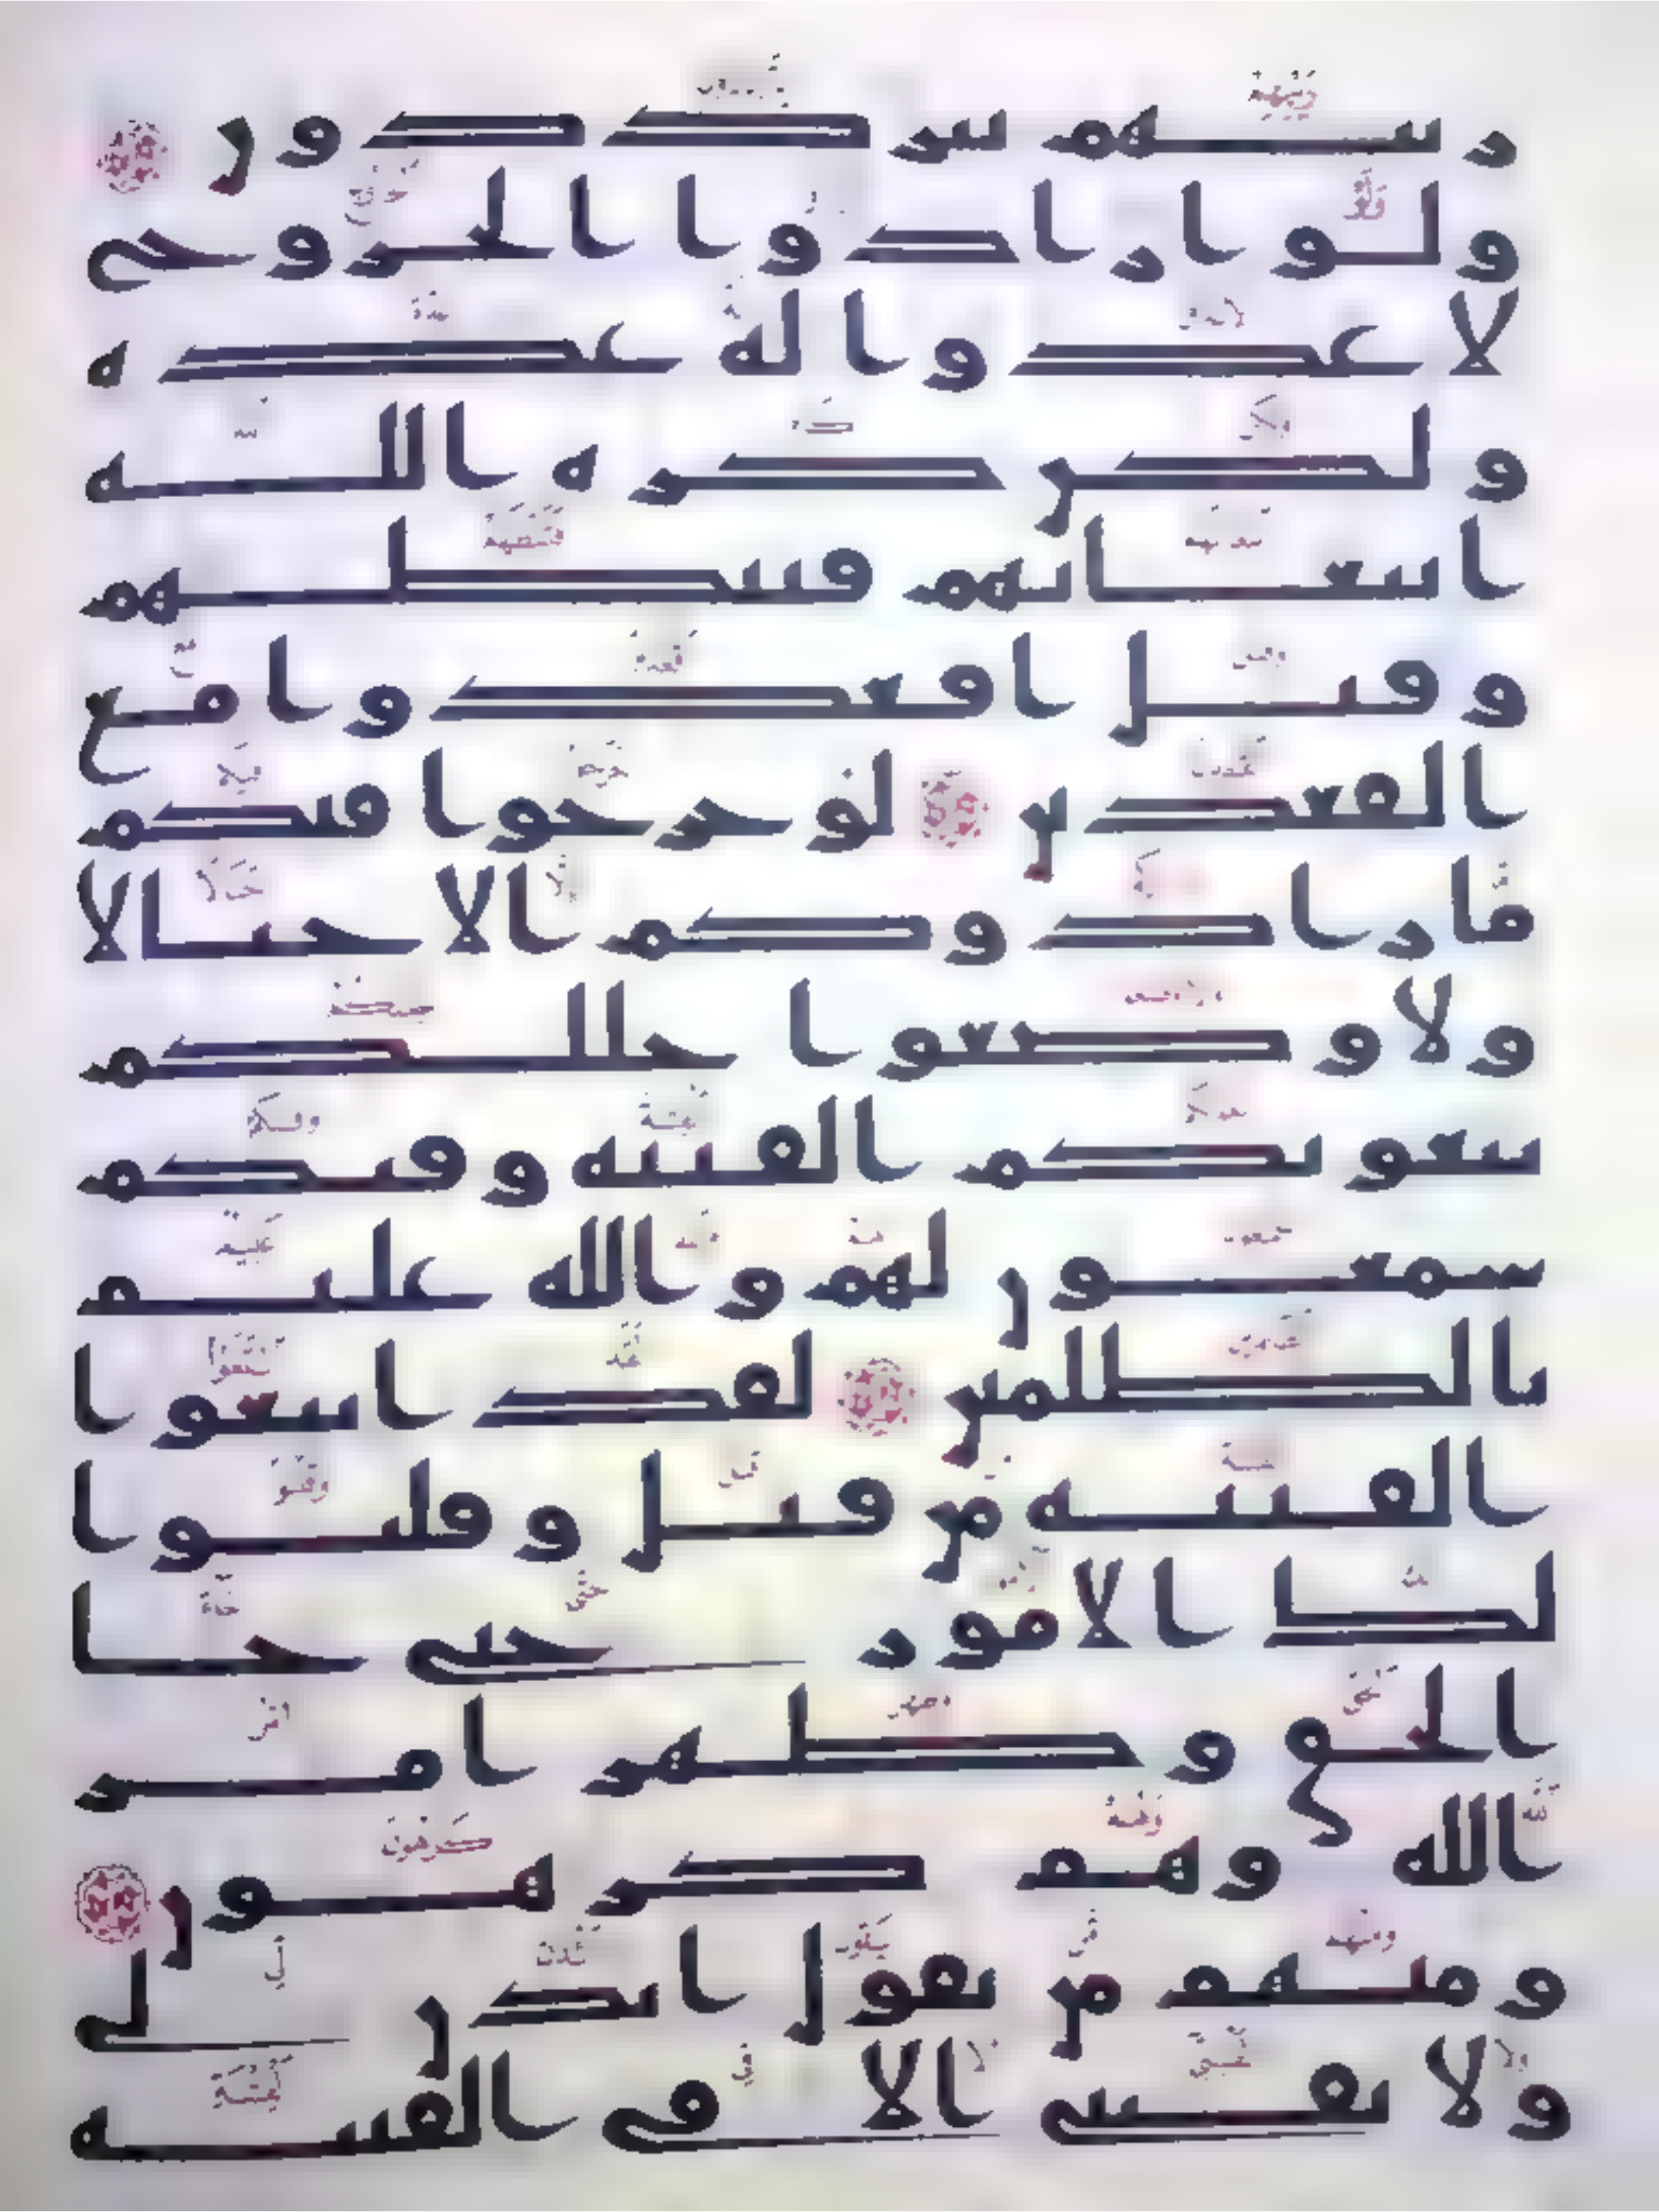 ريبهم يترددون
ولو ارادوا الخروج
لاعدوا له عده
ولكن كره الله
انبعاثهم فثبطهم
وقيل اقعدوا مع
القعدين لو خرجوا فيكم
ما زادوكم الا خبالا
ولاوضعوا خللكم
يبغونكم الفتنه وفيكم
سمعون لهم والله عليم
بالظلمين لقد ابتغوا
الفتنه من قبل وقلبوا
لك الامور حتى جا
الحق وظهر امر
الله وهم كرهون
ومنهم من يقول ايذن لي
ولا تفتني الا في الفتنه